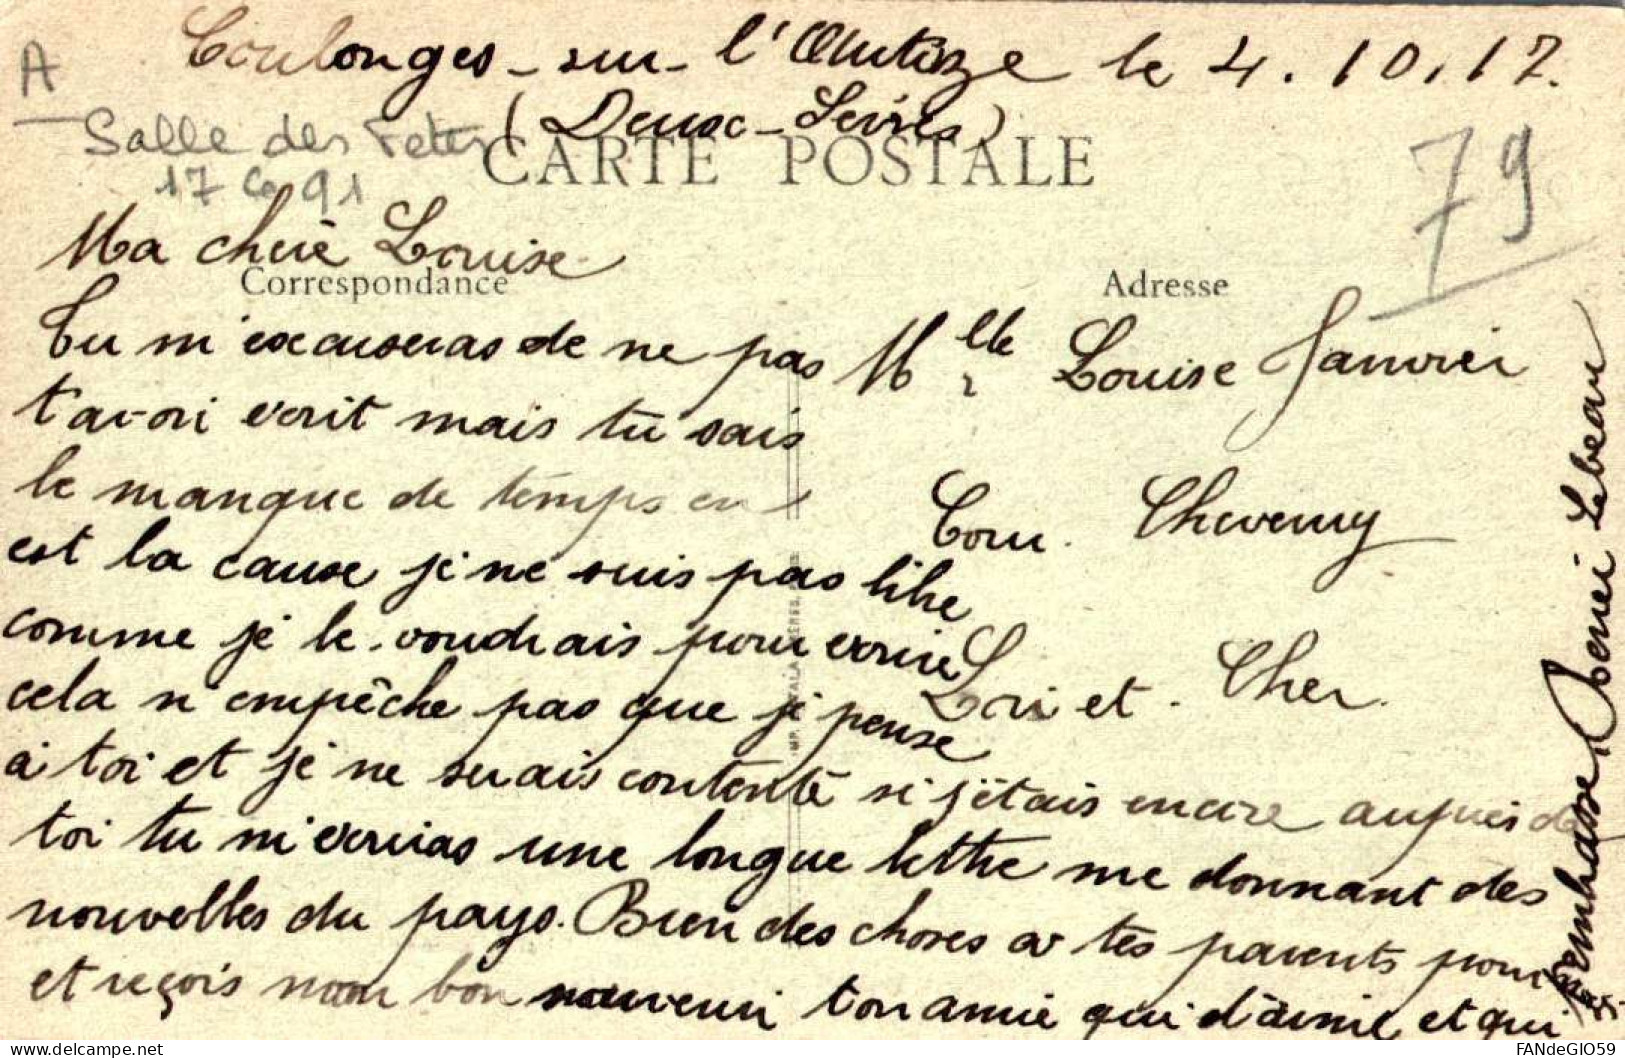 Coulonges-sur-l'Autize le 4.10.17.
(Deux-Sèvres)
A
Salle des Fetes
17 Ca 91
79
CARTE POSTALE
Correspondance
Adresse
Ma chère Louise
Tu m'excuseras de ne pas
t'avoir écrit mais tu sais
le manque de temps en
est la cause je ne suis pas libre
comme je le voudrais pour écrire
cela n'empêche pas que je pense
à toi et je ne serais contente si j'étais encore auprès de
toi tu m'écriras une longue lettre me donnant des
nouvelles du pays. Bien des choses à tes parents pour
et reçois mon bon souvenir ton amie qui t'aime et qui
t'embrasse Renée Lebeau
Mlle Louise Janvier
Cour Cheverny
Loir et Cher
FANdeGIO59